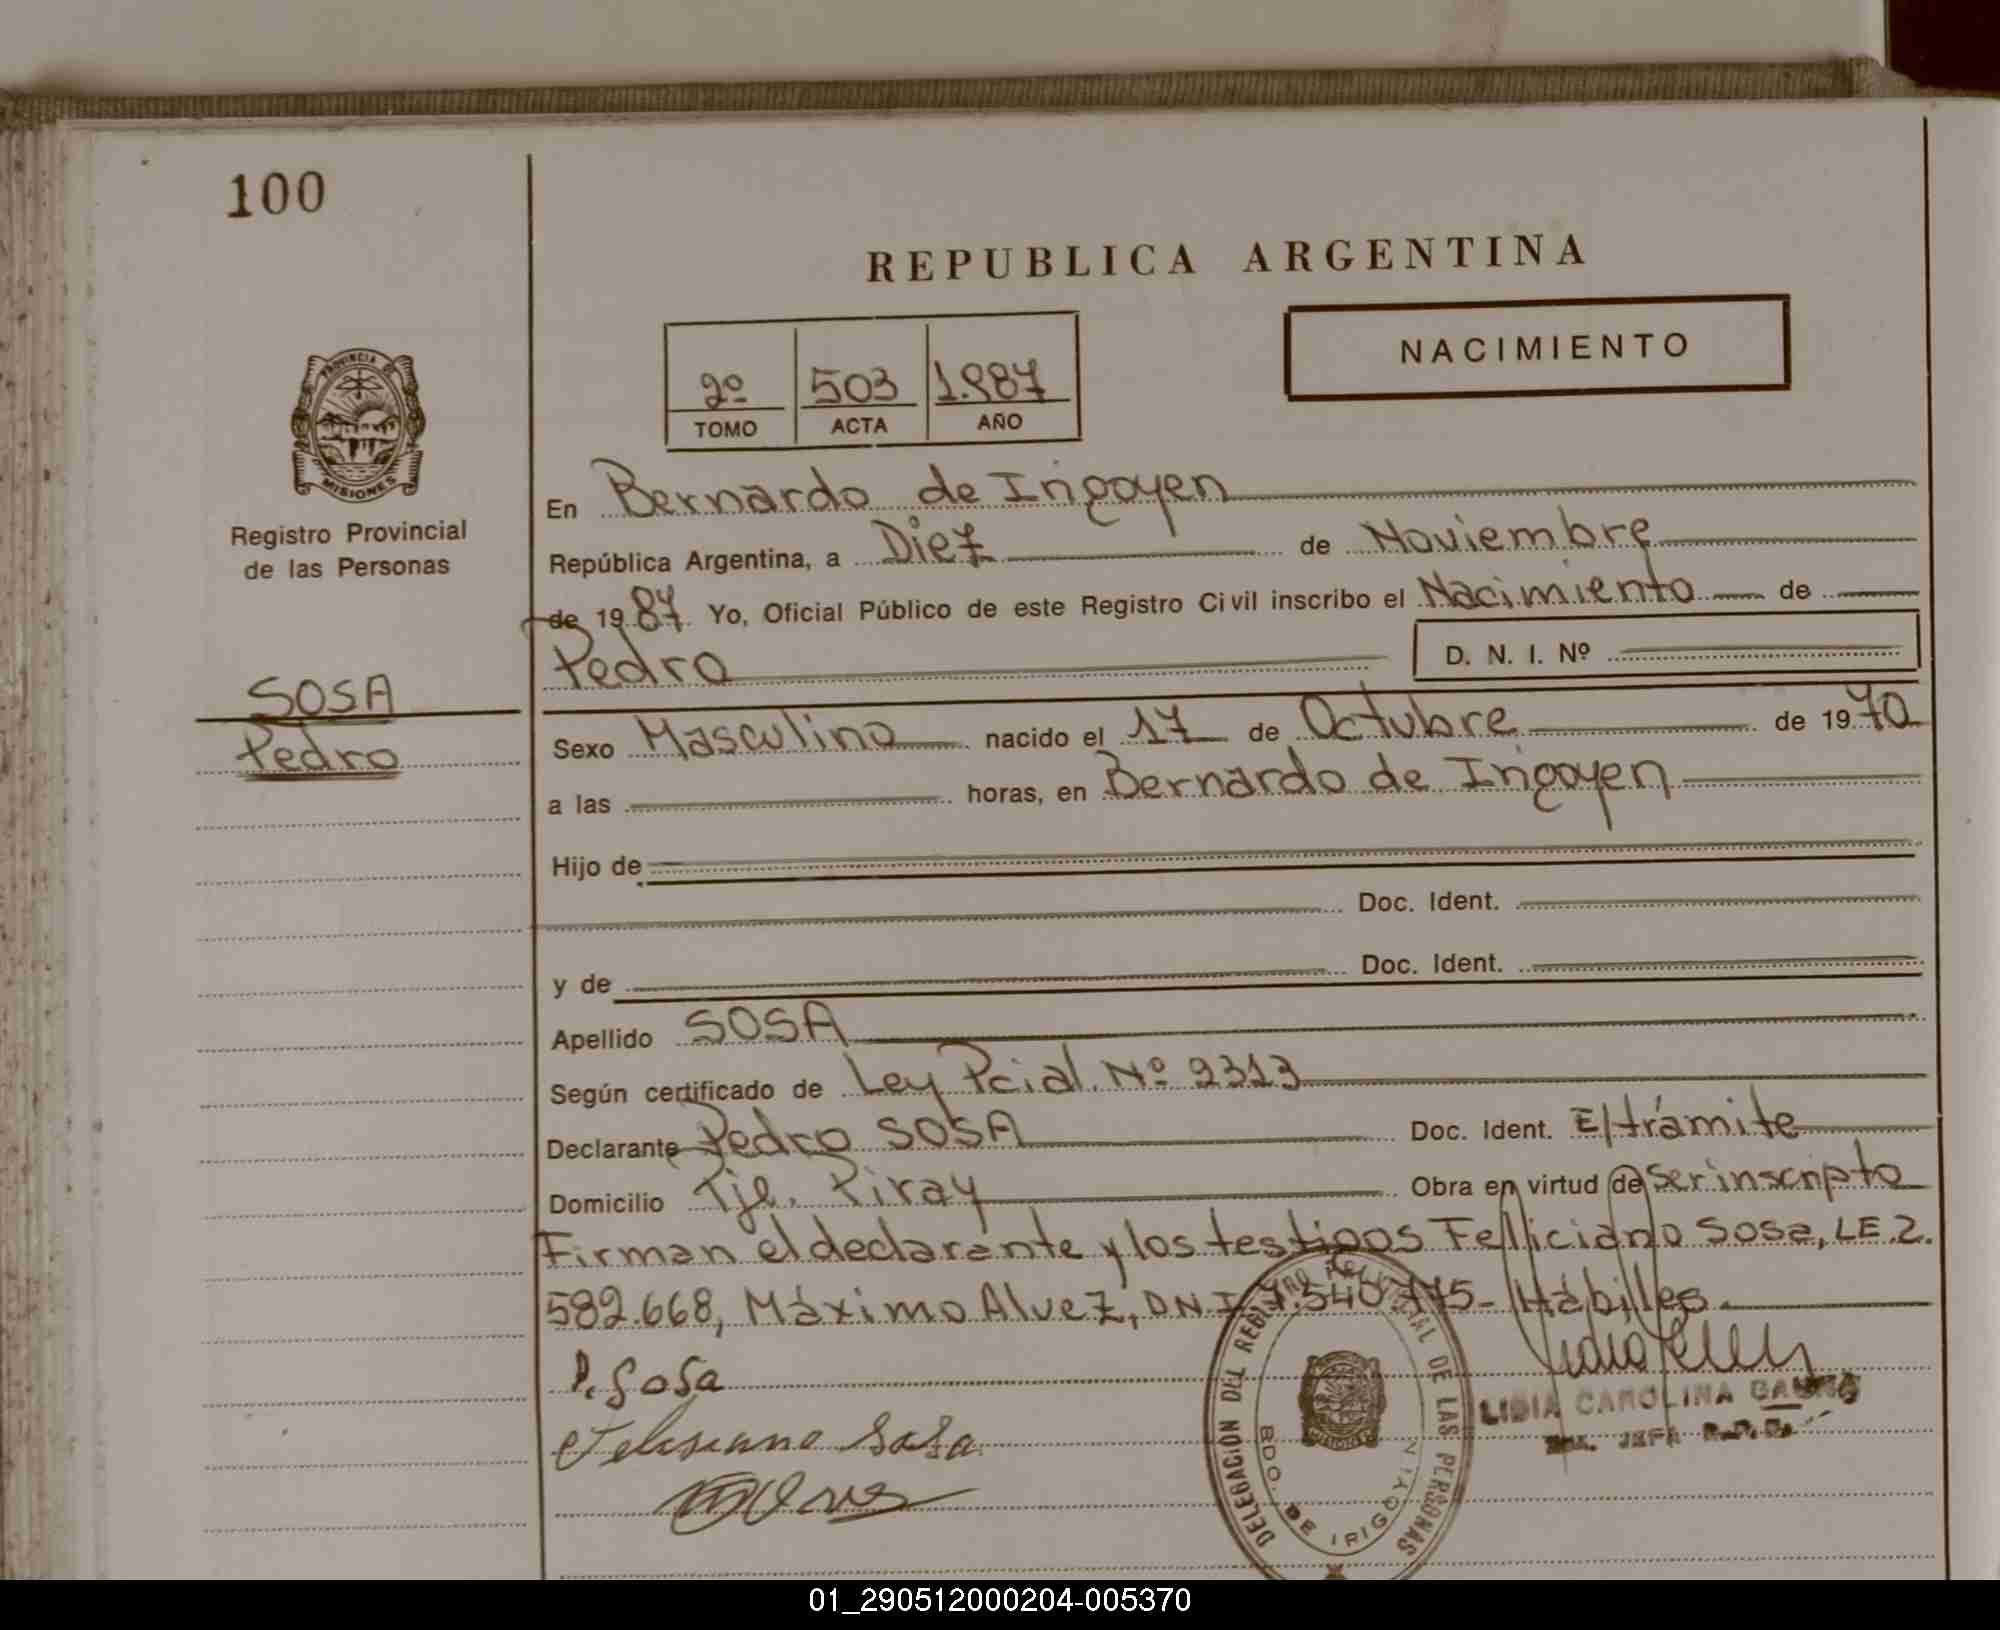 100
REPUBLICA ARGENTINA
NACIMIENTO
2º 503 1.987
TOMO ACTA AÑO
PROVINCIA DE
MISIONES
Registro Provincial
de las Personas
En Bernardo de Irigoyen
República Argentina, a Diez de Noviembre
de 1987 Yo, Oficial Público de este Registro Civil inscribo el Nacimiento de
Pedro D. N. I. Nº
SOSA
Pedro
Sexo Masculino nacido el 17 de Octubre de 1970
a las horas, en Bernardo de Irigoyen
Hijo de
Doc. Ident.
y de Doc. Ident.
Apellido SOSA
Según certificado de Ley Pcial. Nº 2313
Declarante Pedro SOSA Doc. Ident. E/trámite
Domicilio Pje. Piray Obra en virtud de ser inscripto
Firman el declarante y los testigos Felliciano Sosa, LE.2.
582.668, Máximo Alvez, DNI 7.540.775- Hábilles
P. Sosa
Felisiano Sosa
LIDIA CAROLINA
JEFA R.P.P.
DELEGACIÓN DEL REGISTRO PROVINCIAL DE LAS PERSONAS
BDO. DE IRIGOYEN
01_290512000204-005370